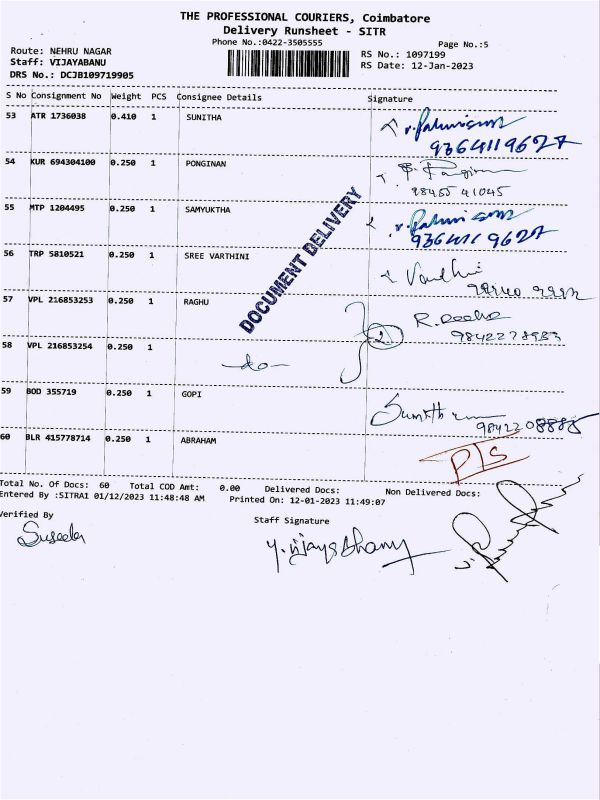 THE PROFESSIONAL COURIERS, Coimbatore
Delivery Runsheet - SITR
Phone No.:0422-3505555
Page No.:5
Route: NEHRU NAGAR
RS No.: 1097199
Staff: VIJAYABANU
RS Date: 12-Jan-2023
DRS No.: DCJB109719905
S No Consignment No Weight PCS Consignee Details Signature
53 ATR 1736038 0.410 1 SUNITHA
9364119627
54 KUR 694304100 0.250 1 PONGINAN
98455 41045
55 MTP 1204495 0.250 1 SAMYUKTHA
9364119627
56 TRP 5810521 0.250 1 SREE VARTHINI
57 VPL 216853253 0.250 1 RAGHU
2
58 VPL 216853254 0.250 1
-do-
59 BOD 355719 0.250 1 GOPI
60 BLR 415778714 0.250 1 ABRAHAM
DOCUMENT DELIVERY
Total No. Of Docs: 60 Total COD Amt: 0.00 Delivered Docs: Non Delivered Docs:
Entered By :SITRA1 01/12/2023 11:48:48 AM Printed On: 12-01-2023 11:49:07
Verified By
Staff Signature
Suseela